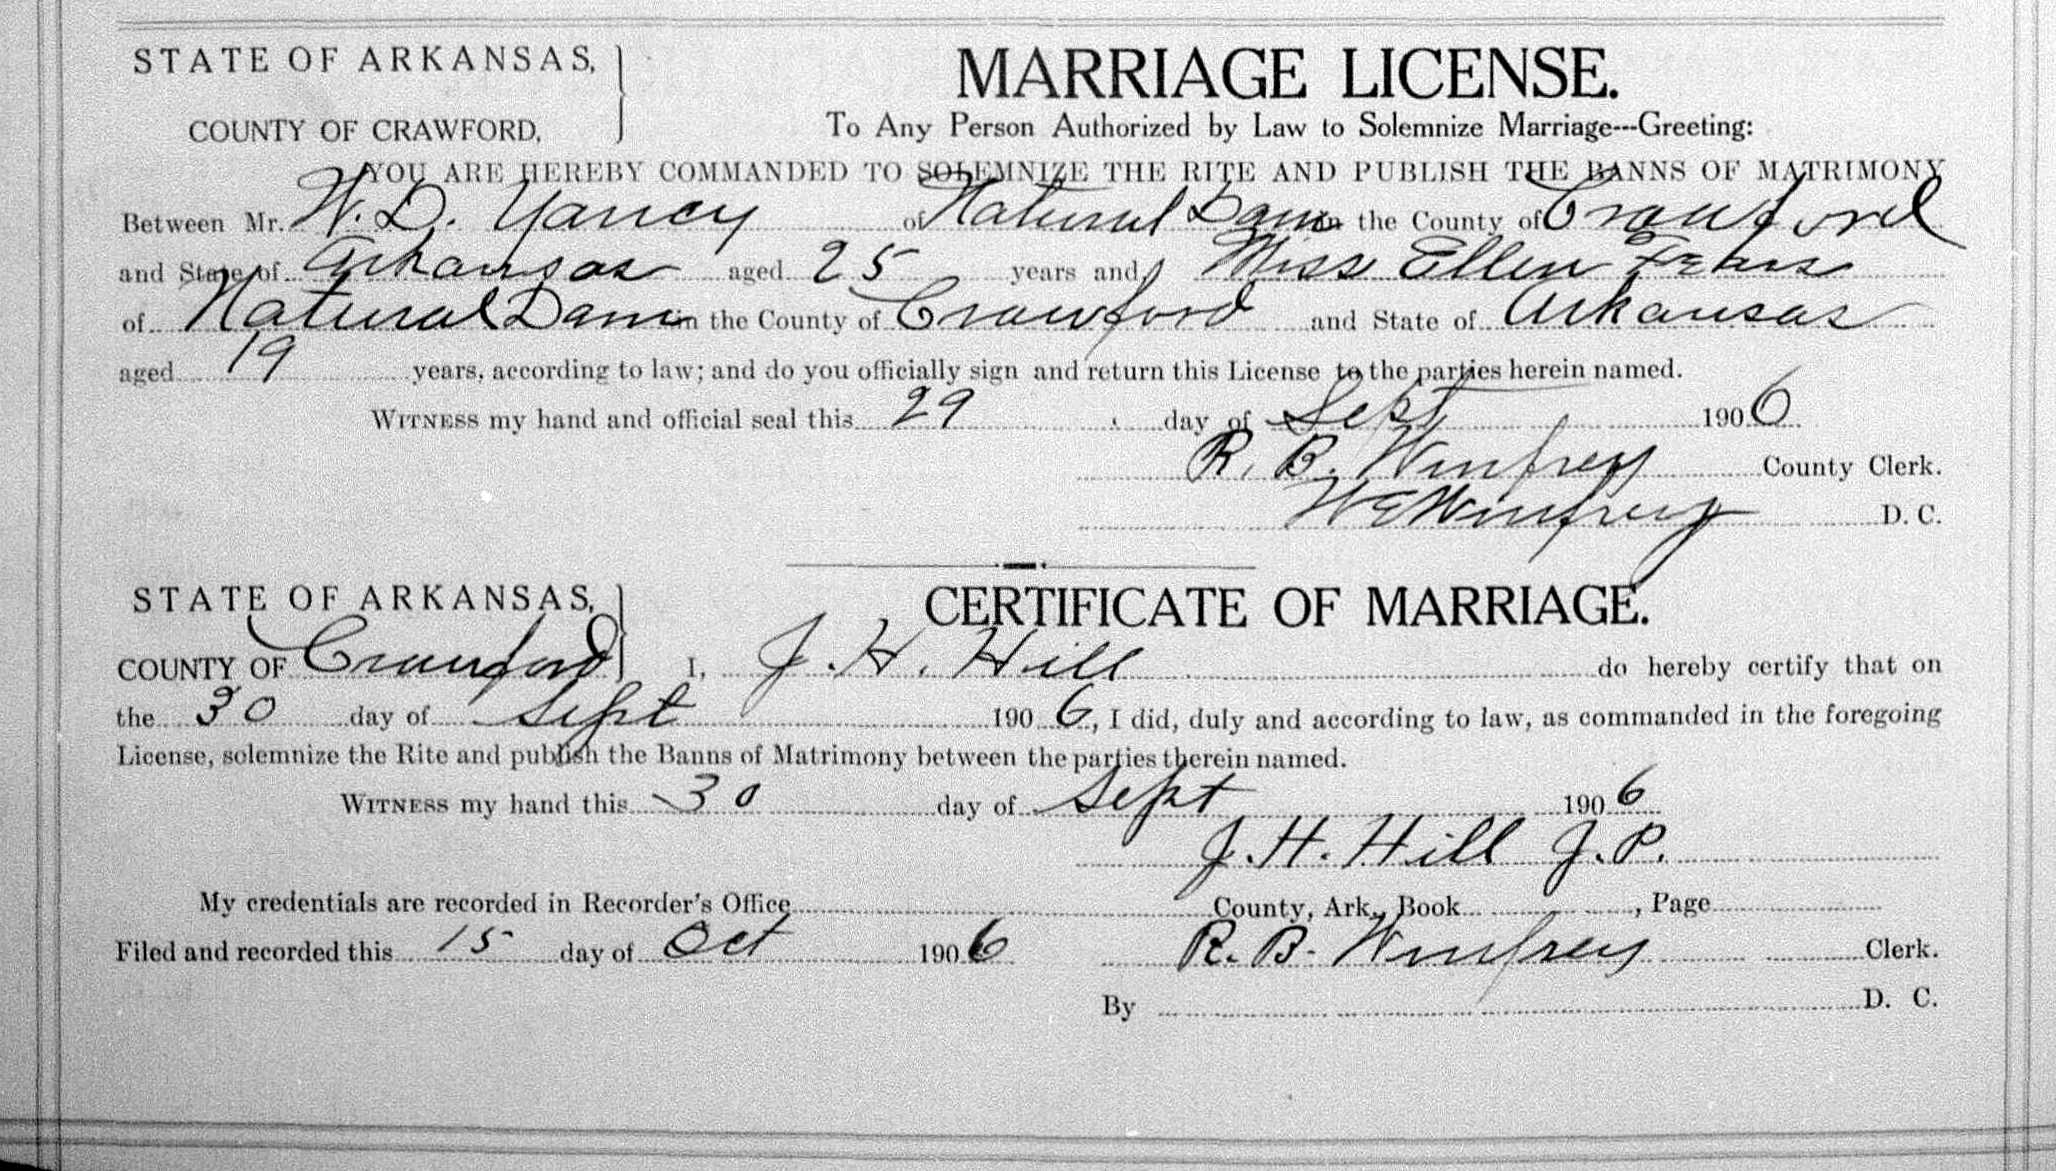 STATE OF ARKANSAS,
COUNTY OF CRAWFORD,
MARRIAGE LICENSE.
To Any Person Authorized by Law to Solemnize Marriage---Greeting:
YOU ARE HEREBY COMMANDED TO SOLEMNIZE THE RITE AND PUBLISH THE BANNS OF MATRIMONY
Between Mr. W. D. Yancy of Natural Dam in the County of Crawford
and State of Arkansas aged 25 years and Miss Ellen
of Natural Dam in the County of Crawford and State of Arkansas
aged 19 years, according to law; and do you officially sign and return this License to the parties herein named.
WITNESS my hand and official seal this 29 day of Sept 1906
R. B. Winfrey County Clerk.
W E Winfrey D. C.
STATE OF ARKANSAS,
CERTIFICATE OF MARRIAGE.
COUNTY OF Crawford I, J. H. Hill do hereby certify that on
the 30 day of Sept 1906, I did, duly and according to law, as commanded in the foregoing
License, solemnize the Rite and publish the Banns of Matrimony between the parties therein named.
WITNESS my hand this 30 day of Sept 1906
J. H. Hill J. P.
My credentials are recorded in Recorder's Office County, Ark., Book , Page
Filed and recorded this 15 day of Oct 1906 R. B. Winfrey Clerk.
By D. C.